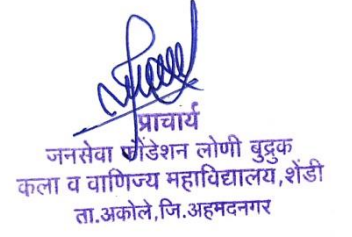 प्राचार्य
जनसेवा फौंडेशन लोणी बुद्रुक
कला व वाणिज्य महाविद्यालय,शेंडी
ता.अकोले,जि.अहमदनगर